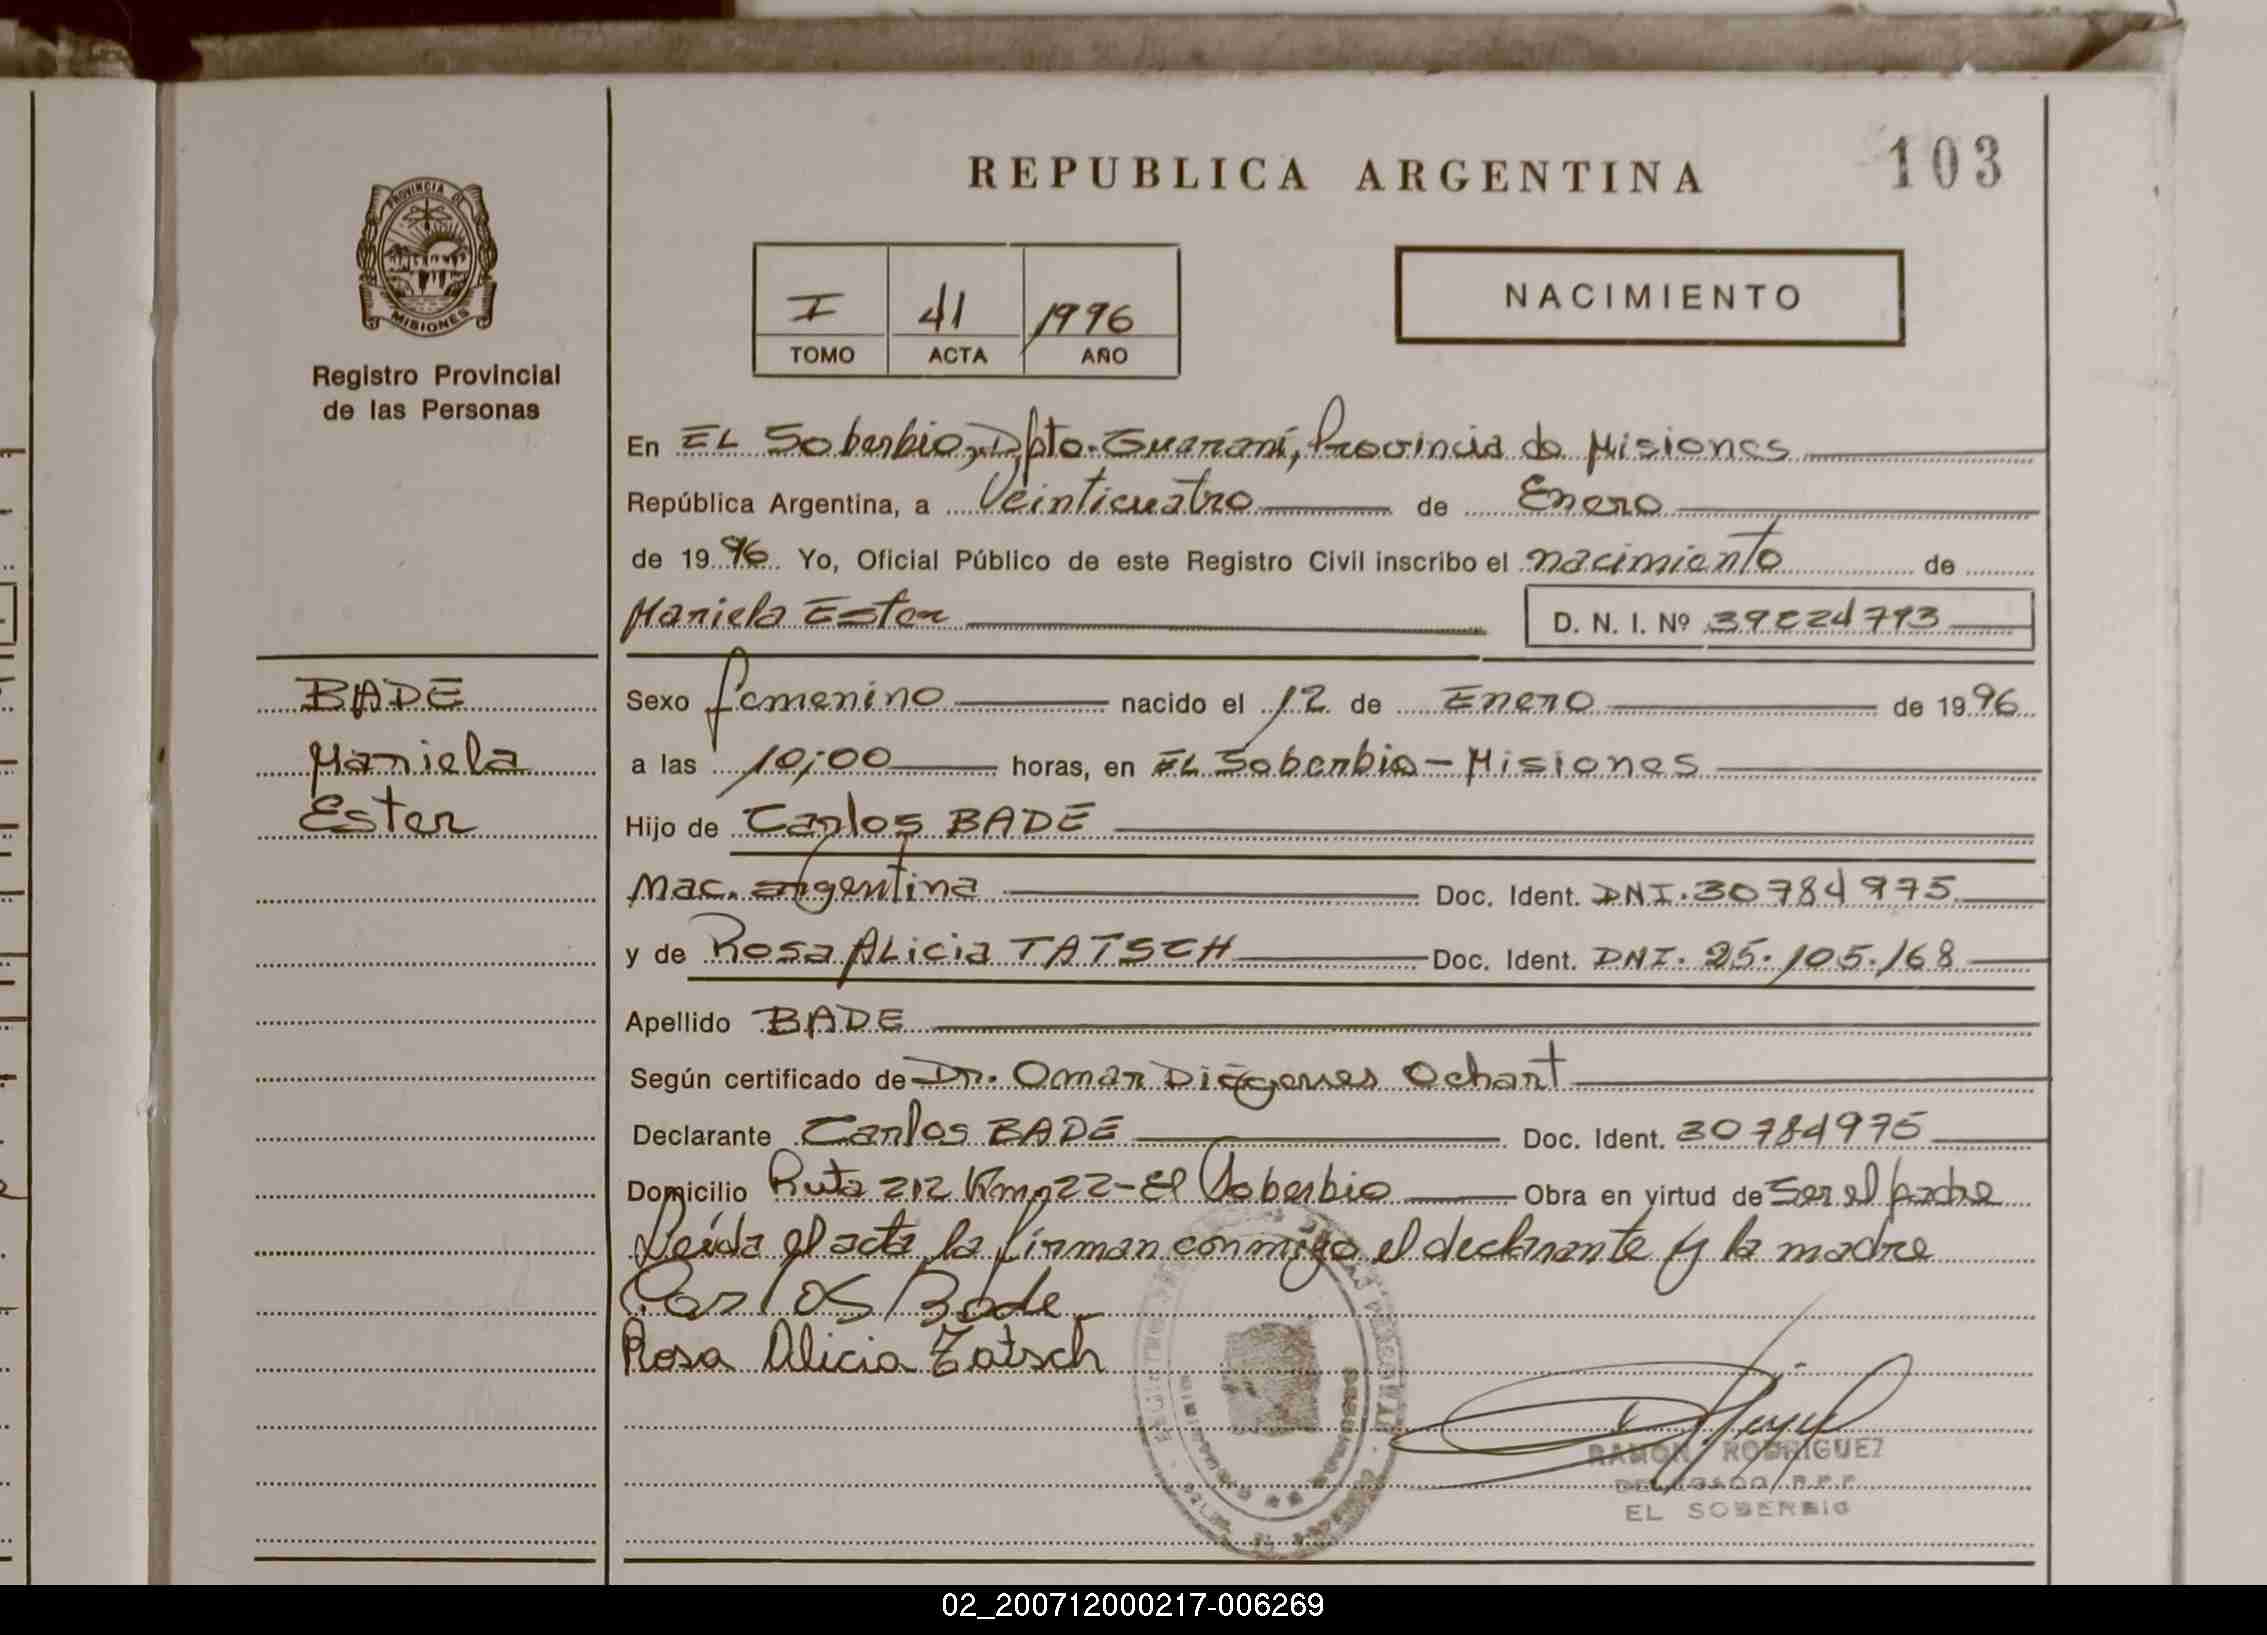 REPUBLICA ARGENTINA
103
PROVINCIA DE
MISIONES
Registro Provincial
de las Personas
I 41 1996
TOMO ACTA AÑO
NACIMIENTO
En EL Soberbio, Dpto. Guaraní, Provincia de Misiones
República Argentina, a Veinticuatro de Enero
de 1996 Yo, Oficial Público de este Registro Civil inscribo el nacimiento de
Mariela Ester D. N. I. Nº 39224793
BADE
Mariela
Ester
Sexo femenino nacido el 12 de Enero de 1996
a las 10;00 horas, en EL Soberbio - Misiones
Hijo de Carlos BADE
Nac. argentina Doc. Ident. DNI. 30784975
y de Rosa ALicia TATSCH Doc. Ident. DNI. 25.105.168
Apellido BADE
Según certificado de Dr. Omar Diógenes Ochart
Declarante Carlos BADE Doc. Ident. 30784975
Domicilio Ruta 212 Km. 22 - El Soberbio Obra en virtud de Ser el padre
Leída el acta la firman conmigo el declarante y la madre
Carlos Bade
Rosa Alicia Tatsch
RAMON RODRIGUEZ
DELEGADO R.P.P.
EL SOBERBIO
02_200712000217-006269